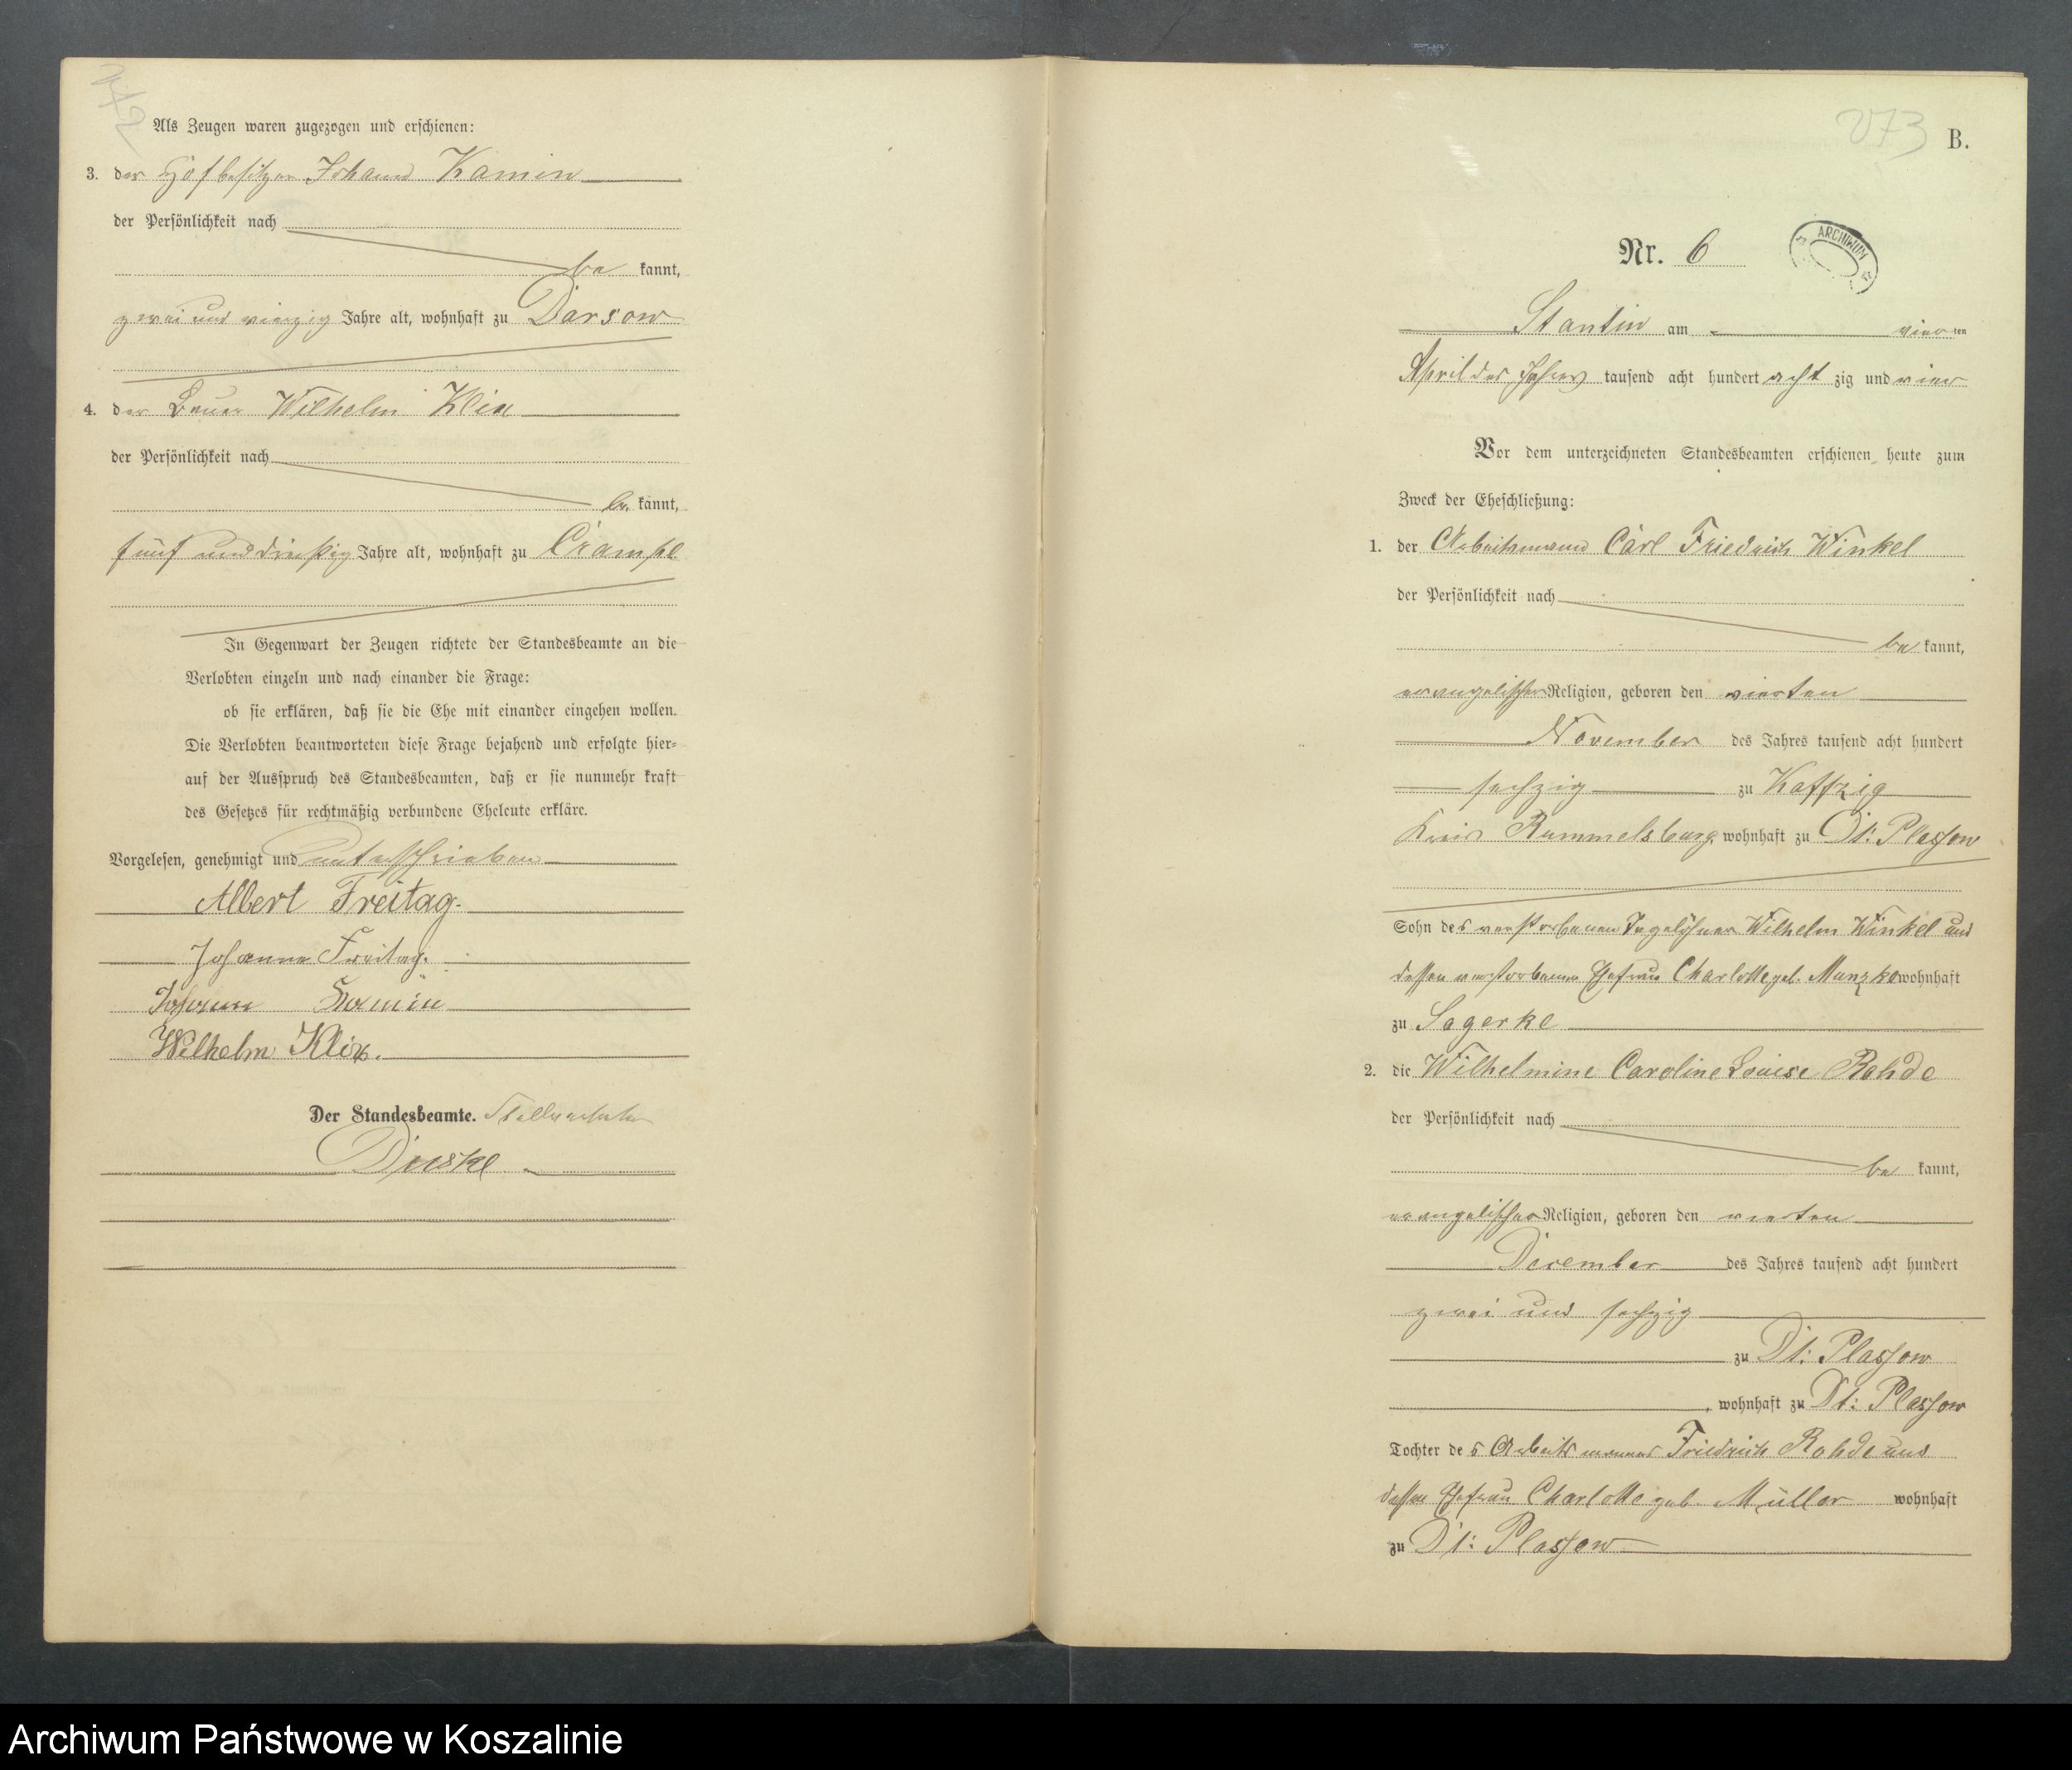 Als Zeugen waren zugezogen und erschienen:
3. der Hofbesitzer Johann Kamin
der Persönlichkeit nach
be kannt,
zwei und vierzig Jahre alt, wohnhaft zu Darsow
4. der Bauer Wilhelm Klix
der Persönlichkeit nach
be kannt,
fünf und dreißig Jahre alt, wohnhaft zu Crampe
In Gegenwart der Zeugen richtete der Standesbeamte an die
Verlobten einzeln und nach einander die Frage:
ob sie erklären, daß sie die Ehe mit einander eingehen wollen.
Die Verlobten beantworteten diese Frage bejahend und erfolgte hier-
auf der Ausspruch des Standesbeamten, daß er sie nunmehr kraft
des Gesetzes für rechtmäßig verbundene Eheleute erkläre.
Vorgelesen, genehmigt und unterschrieben
Albert Freitag.
Johanne Freitag.
Johann Kamin
Wilhelm Klix.
Der Standesbeamte. Stellvertreter
273
B.
Nr. 6
ARCHIWUM
Stantin am vierten
April des Jahres tausend acht hundert acht zig und vier
Vor dem unterzeichneten Standesbeamten erschienen heute zum
Zweck der Eheschließung:
1. der Arbeitsmann Carl Friedrich Winkel
der Persönlichkeit nach
be kannt,
evangelischer Religion, geboren den vierten
November des Jahres tausend acht hundert
sechzig zu Kaffzig
Kreis Rummelsburg, wohnhaft zu Dt: Plassow
Sohn des verstorbenen Tagelöhner Wilhelm Winkel und
dessen verstorbenen Ehefrau Charlotte geb. Manzke wohnhaft
zu Sagerke
2. die Wilhelmine Caroline Louise Rohde
der Persönlichkeit nach
be kannt,
evangelischer Religion, geboren den vierten
December des Jahres tausend acht hundert
zwei und sechzig
zu Dt: Plassow
, wohnhaft zu Dt: Plassow
Tochter des Arbeitsmannes Friedrich Rohde und
dessen Ehefrau Charlotte geb. Müller wohnhaft
zu Dt: Plassow
Archiwum Państwowe w Koszalinie